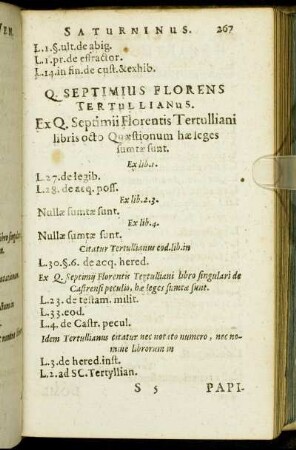 SATURNINUS. 267
L.1.§.ult.de abig.
L.1.pr.de effractor.
L.14.in fin.de cust.&exhib.
Q. SEPTIMIUS FLORENS
TERTULLIANUS.
Ex Q. Septimii Florentis Tertulliani
libris octo Quæstionum hæ leges
sumtæ sunt.
Ex lib.1.
L.27.de legib.
L.28. de acq. poss.
Ex lib.2.3.
Nullæ sumtæ sunt.
Ex lib.4.
Nullæ sumtæ sunt.
Citatur Tertullianus eod.lib.in
L.30.§.6. de acq. hered.
Ex Q. Septimij Florentis Tertulliani libro singulari de
Castrensi peculio, hæ leges sumtæ sunt.
L.23. de testam. milit.
L.33.eod.
L.4. de Castr. pecul.
Idem Tertullianus citatur nec notato numero, nec no-
mine librorum in
L.3.de hered.inst.
L.2.ad SC.Tertyllian.
S 5 PAPI-